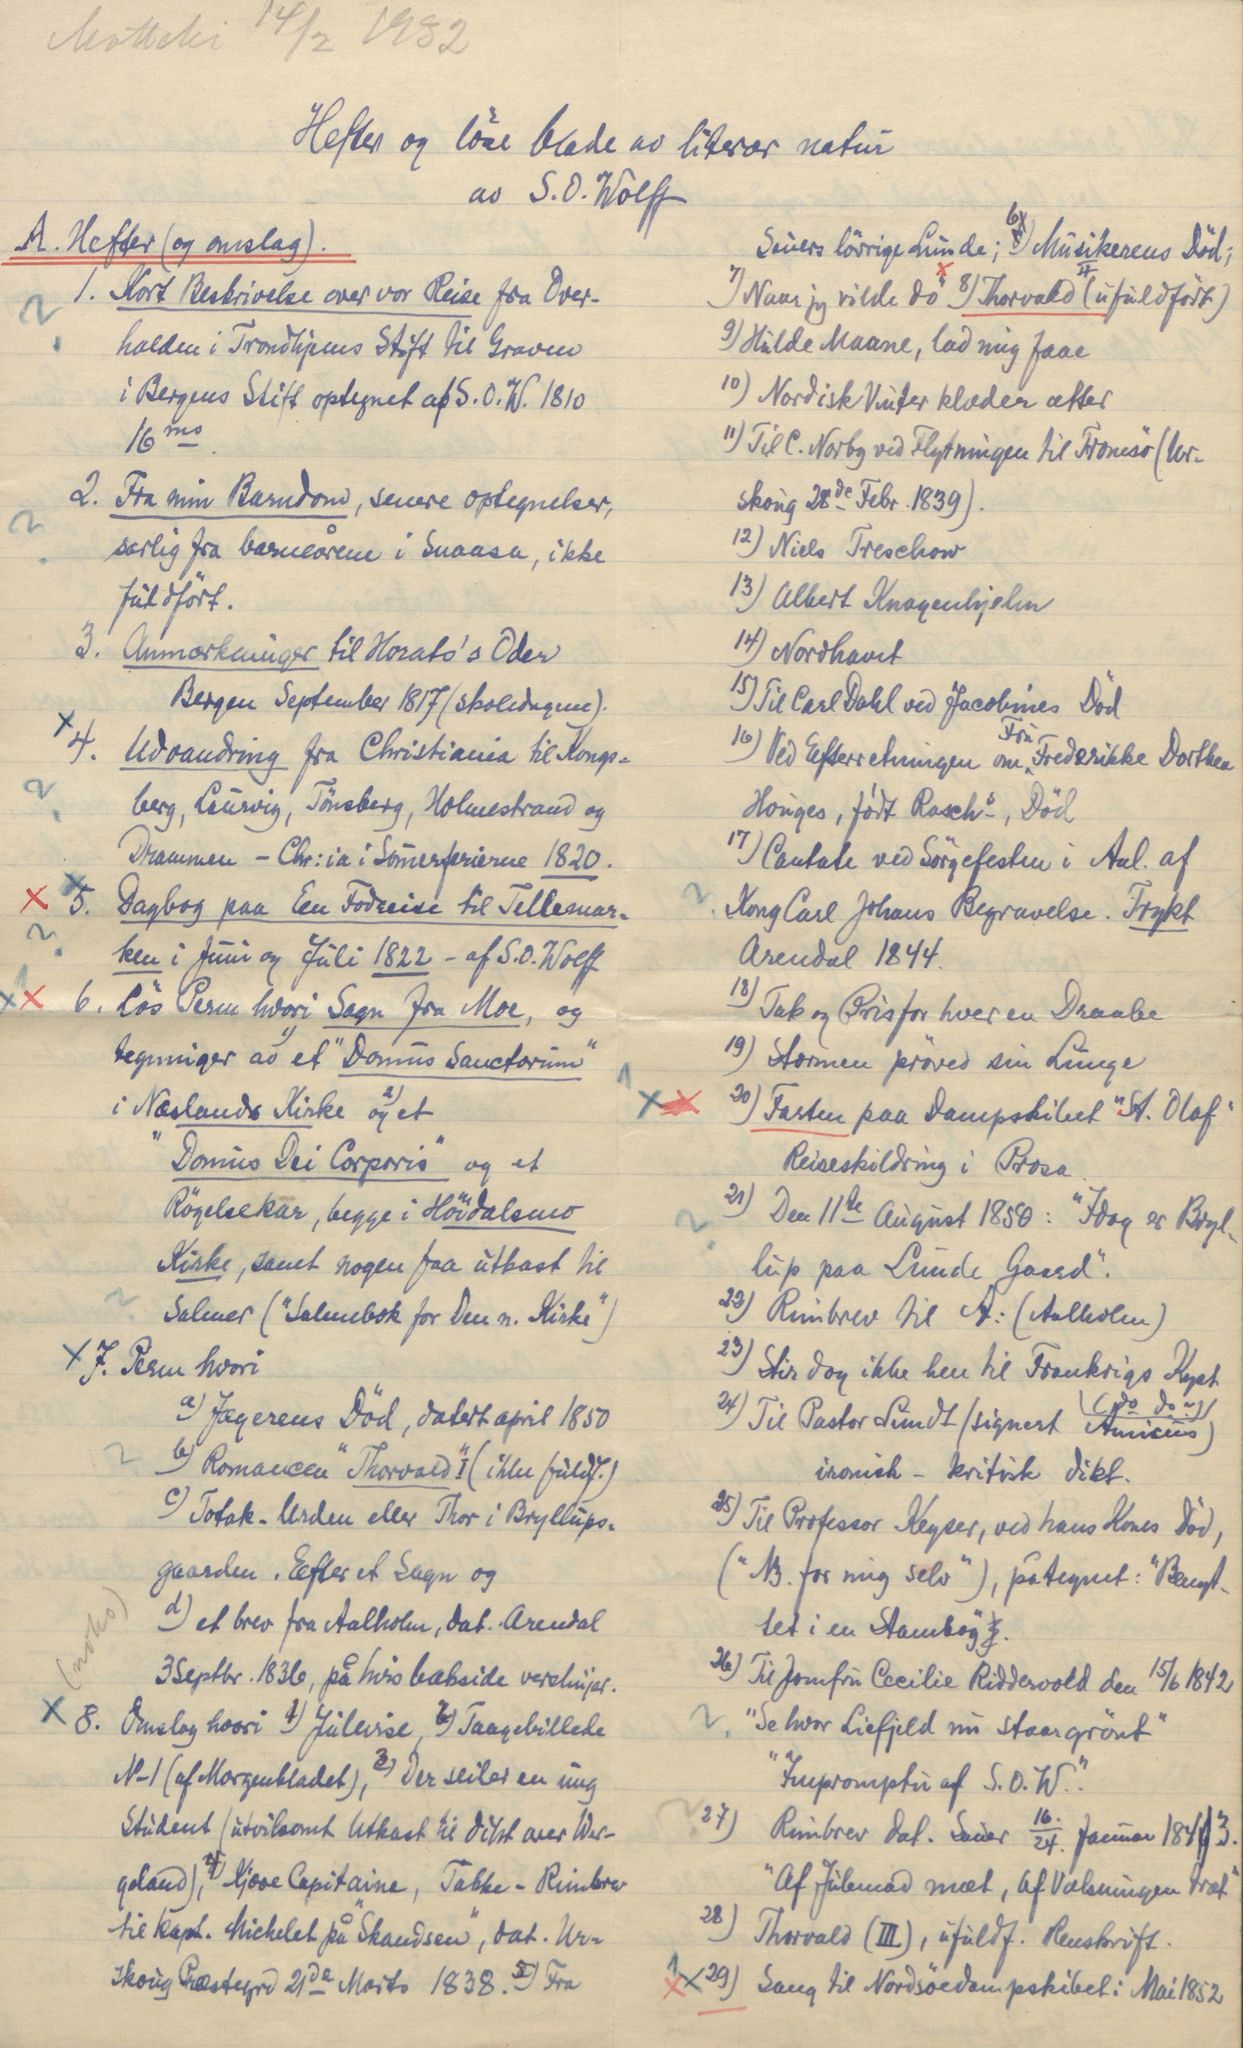 14/2 1932
Hefter og löse blade av literær natur
av S. O. Wolff
A. Hefter (og omslag).
1. Kort Beskrivelse over vor Reise fra Over-
halden i Trondhjems Stift til Graven
i Bergens Stift optegnet af S. O. W. 1810
16mo
2. Fra min Barndom, senere optegnelser,
særlig fra barneårene i Snaasa, ikke
fuldfört.
3. Anmærkninger til Horats's Oder
Bergen September 1817 (skoledagene).
4. Udvandring fra Christiania til Kongs-
berg, Laurvig, Tönsberg, Holmestrand og
Drammen – Chr:ia i Sommerferierne 1820.
5. Dagbog paa Een Fodreise til Tellemar-
ken i Juni og Juli 1822 – af S. O. Wolff
6. Lös Perm hvori Sagn fra Moe, og
tegninger av 1) et "Domus Sanctorum"
i Næslands Kirke og 2) et
"Domus Dei Corporis" og et
Rögelsekar, begge i Höidalsmo
Kirke, samt nogen faa utkast til
Salmer ("Salmebok for Den n. Kirke")
7. Perm hvori
a) Jægerens Död, datert april 1850
b) Romancen "Thorvald" I (ikke fuldf.)
c) Totak-Urden eller Thor i Bryllups-
gaarden. Eefter et Sagn og
d) et brev fra Aalholm, dat. Arendal
3 Septbr. 1836, på hvis bakside verslinjer.
8. Omslag hvori 1) Julevise, 2) Taagebillede
N-1 (af Morgenbladet), 3) Der seiler en ung
Student (utvilsomt Utkast til dikt over Wer-
geland), 4) Kjære Capitaine, Takke-Rimbrev
til kapt. Michelet på "Skandsen", dat. Ur-
skoug Præstegrd 21de Marts 1838. 5) Fra
Seuers lövrige Lunde; 6) Musikerens Död;
7) Naar jeg vilde dö 8) Thorvald II (ufuldfört)
9) Hulde Maane, lad mig faae
10) Nordisk Vinter klæder atter
11) Til C. Norby ved Flytningen til Tromsö (Ur-
skoug 28de Febr. 1839).
12) Niels Treschow
13) Albert Knagenhjelm
14) Nordhavet
15) Til Carl Dahl ved Jacobines Död
16) Ved Eefterretningen om Fru Frederikke Dorthea
Houges, födt Rasch's, Död
17) Cantate ved Sörgefesten i Aal. af
Kong Carl Johans Begravelse. Trykt
Arendal 1844.
18) Tak og Pris for hver en Draabe
19) Stormen pröved sin Lunge
20) Farten paa Dampskibet "St. Olaf"
Reiseskildring i Prosa
21) Den 11te August 1850: "Idag er Bryl-
lup paa Lunde Gaard".
22) Rimbrev til A: (Aalholm)
23) Stir dog ikke hen til Frankrigs Kyst
24) Til Pastor Lundt (signert Amicus)
ironisk – kritisk dikt.
25) Til Professor Keyser, ved hans Kones Död,
("NB. for mig selv"), påtegnet: "Benyt-
tet i en Stambog".
26) Til Jomfru Cecilie Riddervold den 15/6 1842
"Se hvor Liefjeld nu staar grönt"
"Impromptu af S. O. W."
27) Rimbrev dat. Seuer 16/24. Januar 1843.
"Af Julemad mæt, af Valsningen træt"
28) Thorvald (III), ufuldf. Renskrift.
29) Sang til Nordsöedampskibet i Mai 1852
(noko)